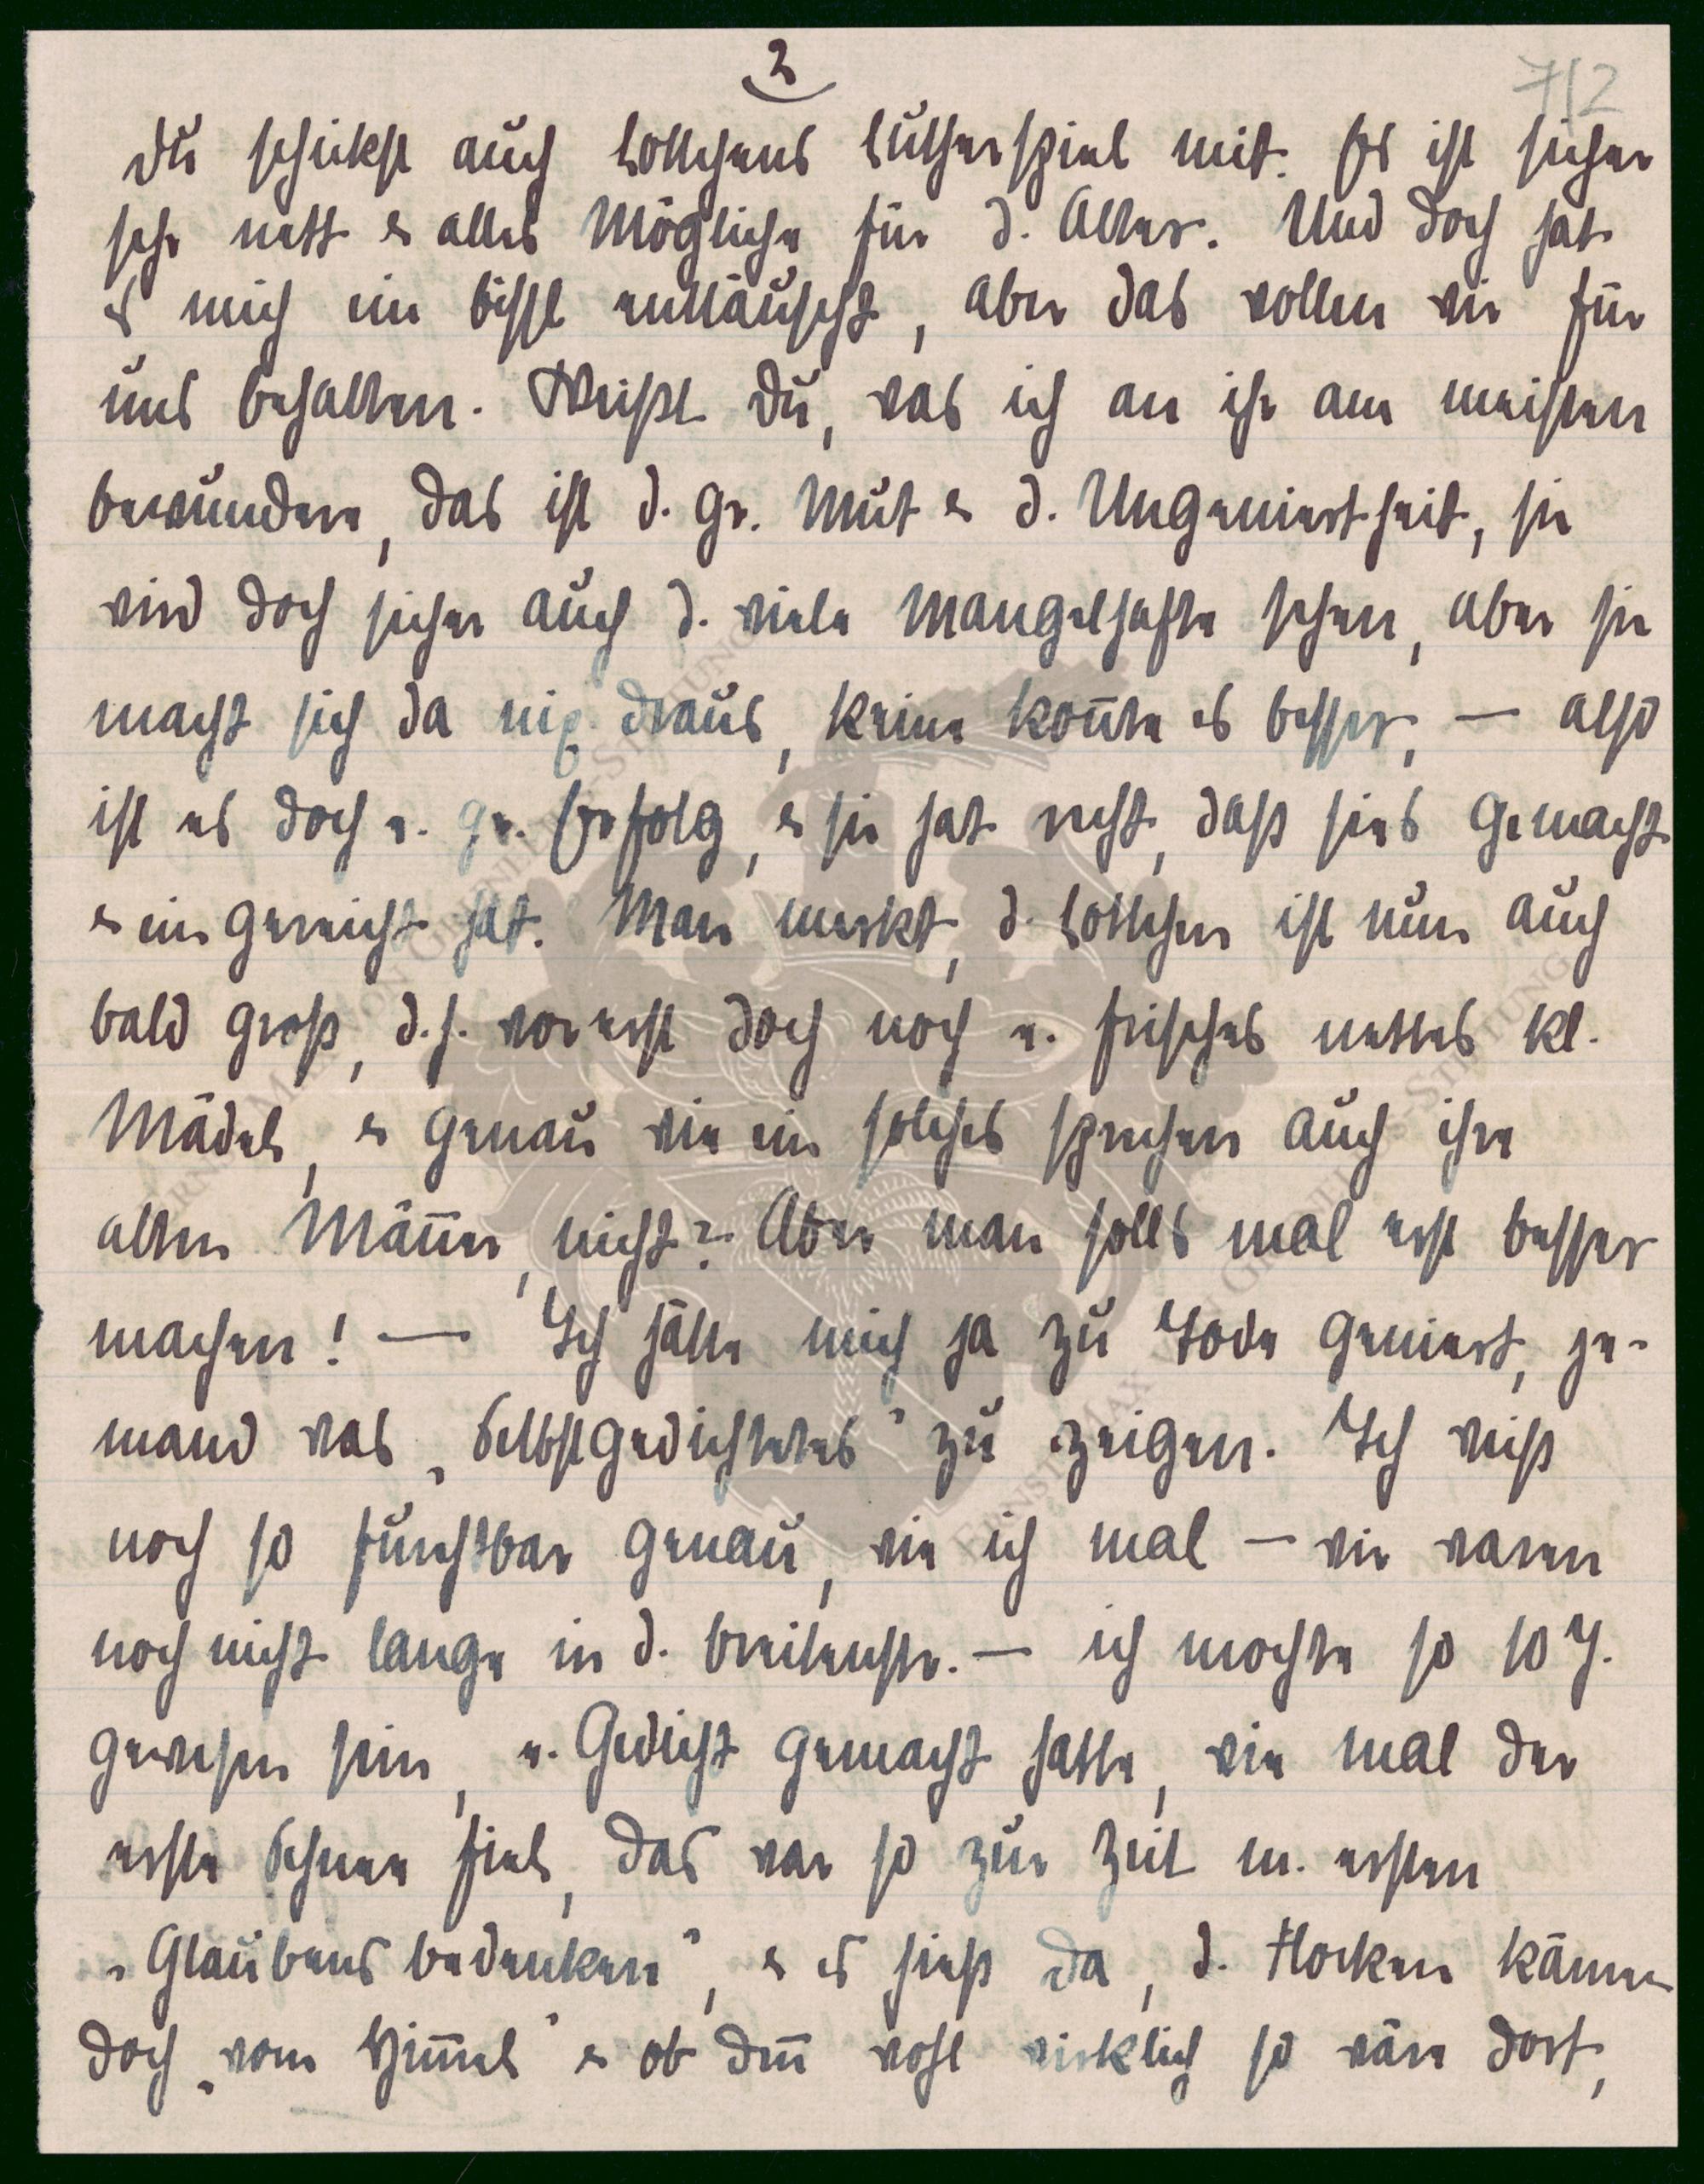 3
712
Du schickst auch Lottchens Lutherspiel mit. Es ist sicher
sehr nett & alles Mögliche für d. Alter. Und doch hat
es mich ein bissl enttäuscht, aber das wollen wir für
uns behalten. Weißt Du, was ich an ihr am meisten
bewundere, das ist d. gr. Mut & d. Ungeniertheit, sie
wird doch sicher auch d. viele Mangelhafte sehen, aber sie
macht sich da nix draus, keine kon̄te es besser, — also
ist es doch e. gr. Erfolg, & sie hat recht, daß sies gemacht
& eingereicht hat. Man merkt, d. Lottchen ist nun auch
bald groß, d. h. vorerst doch noch e. frisches nettes kl.
Mädel, & genau wie ein solches sprechen auch ihre
alten Män̄er, nicht? Aber man solls mal erst besser
machen! — Ich hätte mich ja zu Tode geniert, je-
mand was „Selbstgedichtetes" zu zeigen. Ich weiß
noch so furchtbar genau, wie ich mal — wir waren
noch nicht lange in d. Breitenstr. — ich mochte so 10 J.
gewesen sein, e. Gedicht gemacht hatte, wie mal der
erste Schnee fiel, das war so zur Zeit m. ersten
„Glaubensbedenken", & es hieß da, d. Flocken kämen
doch „vom Him̄el" & ob den̄ wohl wirklich so wäre dort,
ERNST MAX VON GRUNELIUS-STIFTUNG
ERNST MAX VON GRUNELIUS-STIFTUNG